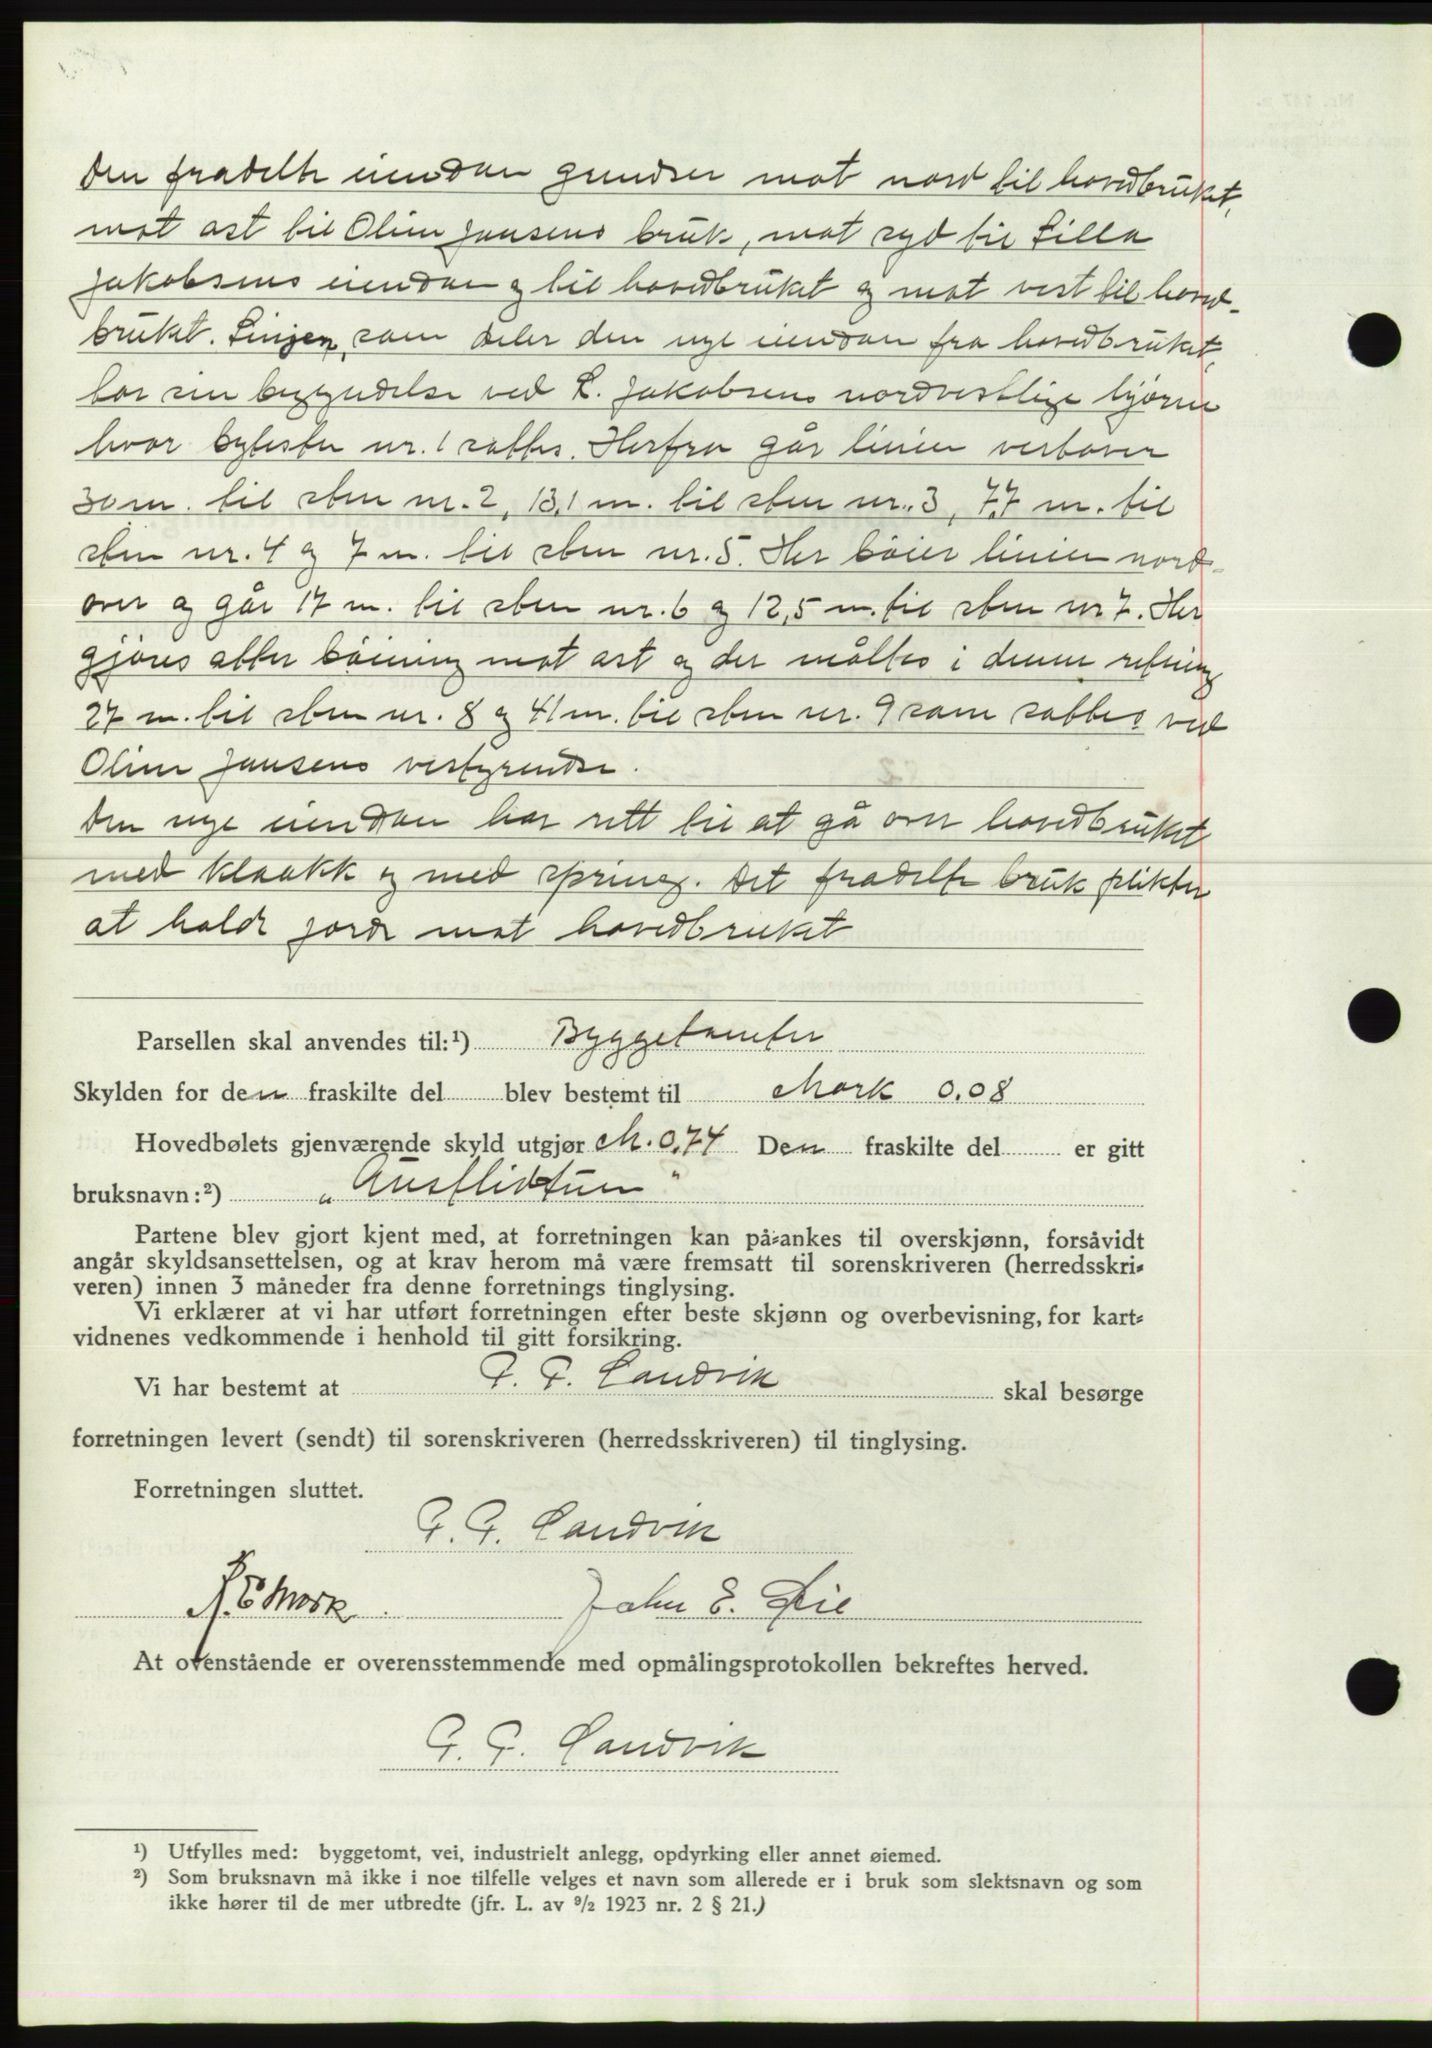 Den fradelte eiendom grendser mot nord til hovedbruket,
mot øst til Oline Jansens bruk, mot syd til Lilla
Jakobsens eiendom og til hovedbruket og mot vest til hoved-
bruket. Linjen, som deler den nye eiendom fra hovedbruket,
har sin begyndelse ved L. Jakobsens nordvestlige hjørne
hvor bytesten nr. 1 sattes. Herfra går linien vestover
30 m. til sten nr. 2, 13,1 m. til sten nr. 3, 7,7 m. til
sten nr. 4 og 7 m. til sten nr. 5. Her bøier linien nord-
over og går 17 m. til sten nr. 6 og 12,5 m. til sten nr 7. Her
gjøres atter bøining mot øst og der måltes i denne retning
27 m. til sten nr. 8 og 41 m. til sten nr. 9 som sattes ved
Oline Jansens vestgrendse.
Den nye eiendom har rett til at gå over hovedbruket
med kloakk og med spring. Det fradelte bruk plikter
at holde gjorde mot hovedbruket
Parsellen skal anvendes til:¹) Byggetomter
Skylden for den fraskilte del blev bestemt til Mork 0.08
Hovedbølets gjenværende skyld utgjør M. 0,74 Den fraskilte del er gitt
bruksnavn:²) „                "
Partene blev gjort kjent med, at forretningen kan på-ankes til overskjønn, forsåvidt
angår skyldsansettelsen, og at krav herom må være fremsatt til sorenskriveren (herredsskri-
veren) innen 3 måneder fra denne forretnings tinglysing.
Vi erklærer at vi har utført forretningen efter beste skjønn og overbevisning, for kart-
vidnenes vedkommende i henhold til gitt forsikring.
Vi har bestemt at P. P. Sandvik skal besørge
forretningen levert (sendt) til sorenskriveren (herredsskriveren) til tinglysing.
Forretningen sluttet.
P. P. Sandvik
E Mork John E. Øie
At ovenstående er overensstemmende med opmålingsprotokollen bekreftes herved.
P. P. Sandvik
¹) Utfylles med: byggetomt, vei, industrielt anlegg, opdyrking eller annet øiemed.
²) Som bruksnavn må ikke i noe tilfelle velges et navn som allerede er i bruk som slektsnavn og som
ikke hører til de mer utbredte (jfr. L. av ⁹/₂ 1923 nr. 2 § 21.)